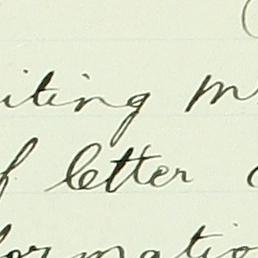 iting m
f letter
formatio